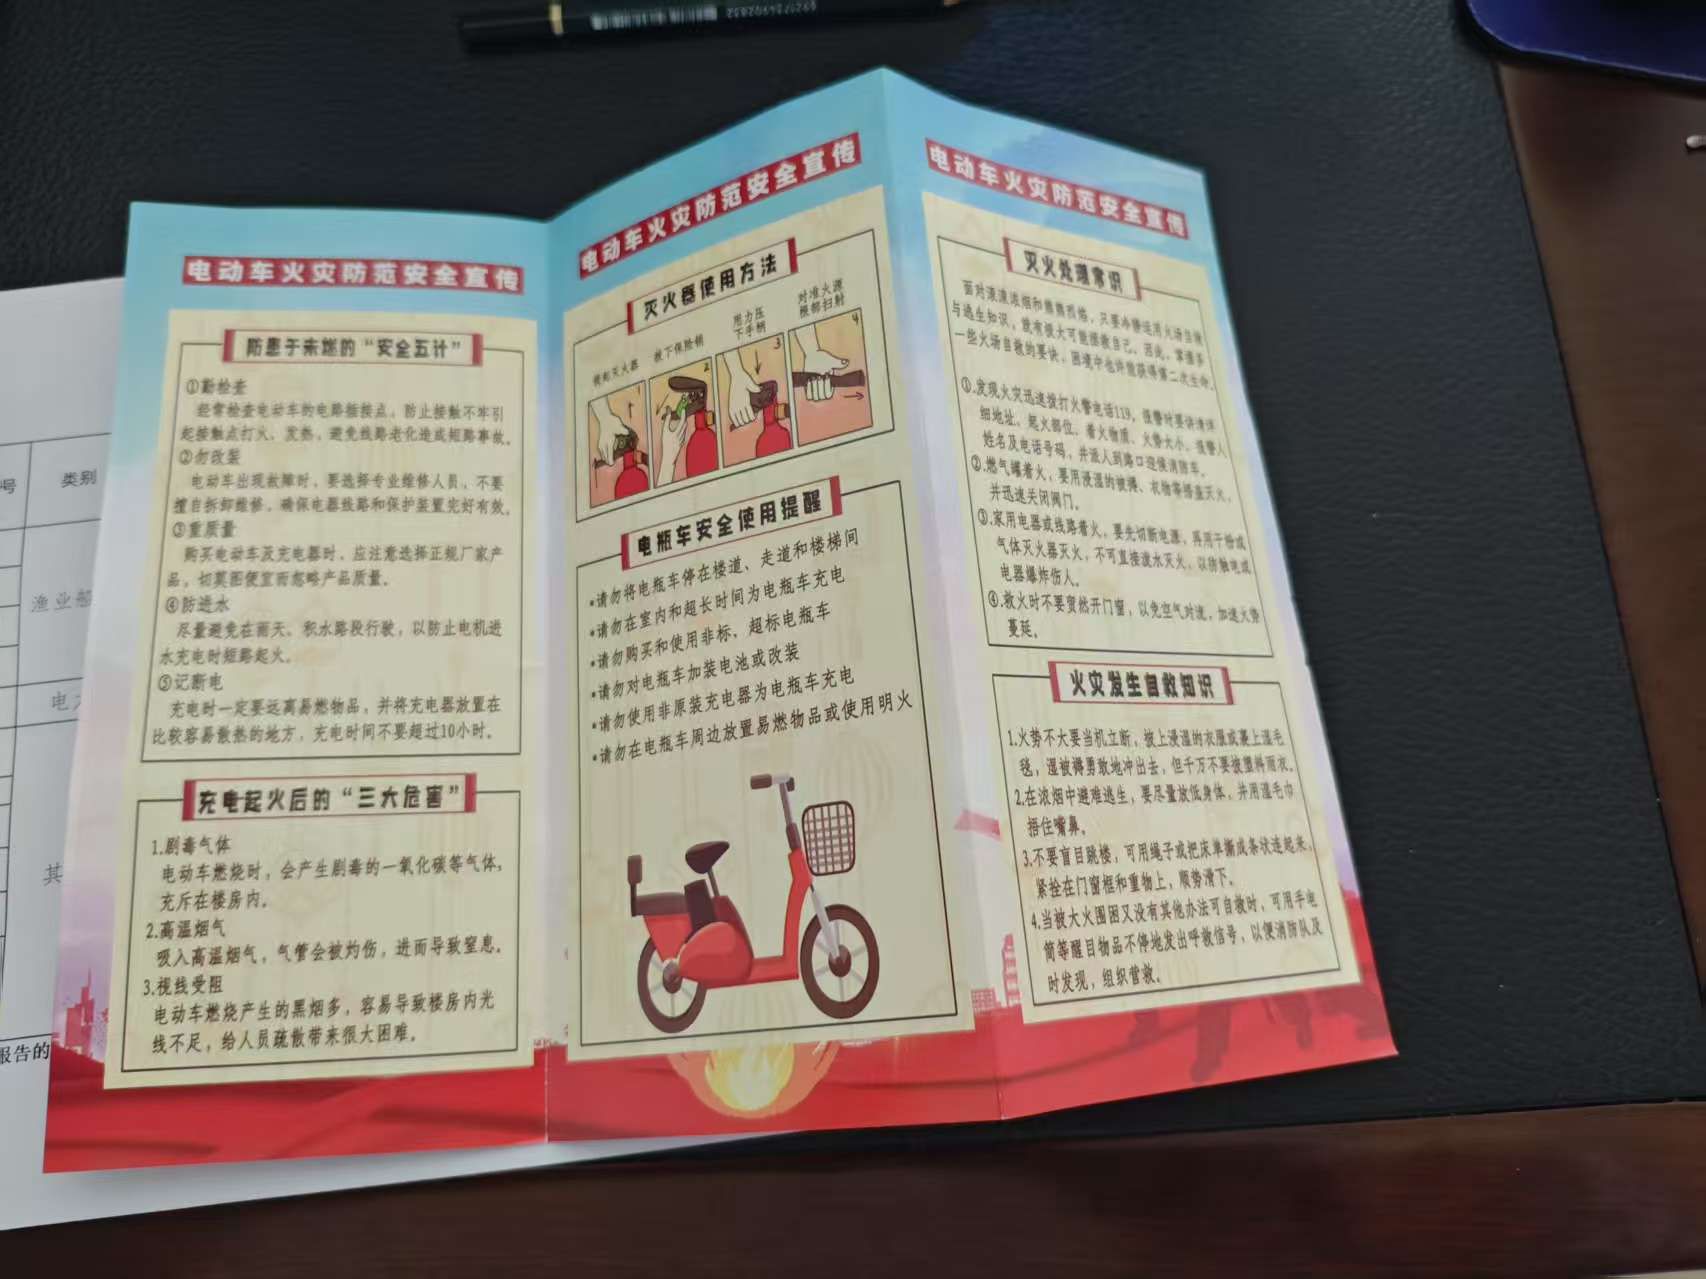 6921734902832
号
类别
渔业船
电力
其
报告的
电动车火灾防范安全宣传
防患于未燃的“安全五计”
①勤检查
经常检查电动车的电路插接点，防止接触不牢引
起接触点打火、发热，避免线路老化造成短路事故。
②勿改装
电动车出现故障时，要选择专业维修人员，不要
擅自拆卸维修，确保电器线路和保护装置完好有效。
③重质量
购买电动车及充电器时，应注意选择正规厂家产
品，切莫图便宜而忽略产品质量。
④防进水
尽量避免在雨天、积水路段行驶，以防止电机进
水充电时短路起火。
⑤记断电
充电时一定要远离易燃物品，并将充电器放置在
比较容易散热的地方，充电时间不要超过10小时。
充电起火后的“三大危害”
1.剧毒气体
电动车燃烧时，会产生剧毒的一氧化碳等气体，
充斥在楼房内。
2.高温烟气
吸入高温烟气，气管会被灼伤，进而导致窒息。
3.视线受阻
电动车燃烧产生的黑烟多，容易导致楼房内光
线不足，给人员疏散带来很大困难。
电动车火灾防范安全宣传
灭火器使用方法
提起灭火器
拔下保险销
用力压
下手柄
对准火源
根部扫射
1
2
3
4
电瓶车安全使用提醒
•请勿将电瓶车停在楼道、走道和楼梯间
•请勿在室内和超长时间为电瓶车充电
•请勿购买和使用非标、超标电瓶车
•请勿对电瓶车加装电池或改装
•请勿使用非原装充电器为电瓶车充电
•请勿在电瓶车周边放置易燃物品或使用明火
电动车火灾防范安全宣传
灭火处理常识
面对滚滚浓烟和熊熊烈焰，只要冷静运用火场自救
与逃生知识，就有极大可能拯救自己。因此，掌握多
一些火场自救的要诀，困境中也许能获得第二次生命。
①.发现火灾迅速拨打火警电话119，报警时要讲清详
细地址、起火部位、着火物质、火势大小、报警人
姓名及电话号码，并派人到路口迎候消防车。
②.燃气罐着火，要用浸湿的被褥、衣物等捂盖灭火，
并迅速关闭阀门。
③.家用电器或线路着火，要先切断电源，再用干粉或
气体灭火器灭火，不可直接泼水灭火，以防触电或
电器爆炸伤人。
④.救火时不要贸然开门窗，以免空气对流，加速火势
蔓延。
火灾发生自救知识
1.火势不大要当机立断，披上浸湿的衣服或裹上湿毛
毯，湿被褥勇敢地冲出去，但千万不要披塑料雨衣。
2.在浓烟中避难逃生，要尽量放低身体，并用湿毛巾
捂住嘴鼻。
3.不要盲目跳楼，可用绳子或把床单撕成条状连起来，
紧拴在门窗框和重物上，顺势滑下。
4.当被大火围困又没有其他办法可自救时，可用手电
筒等醒目物品不停地发出呼救信号，以便消防队及
时发现，组织营救。